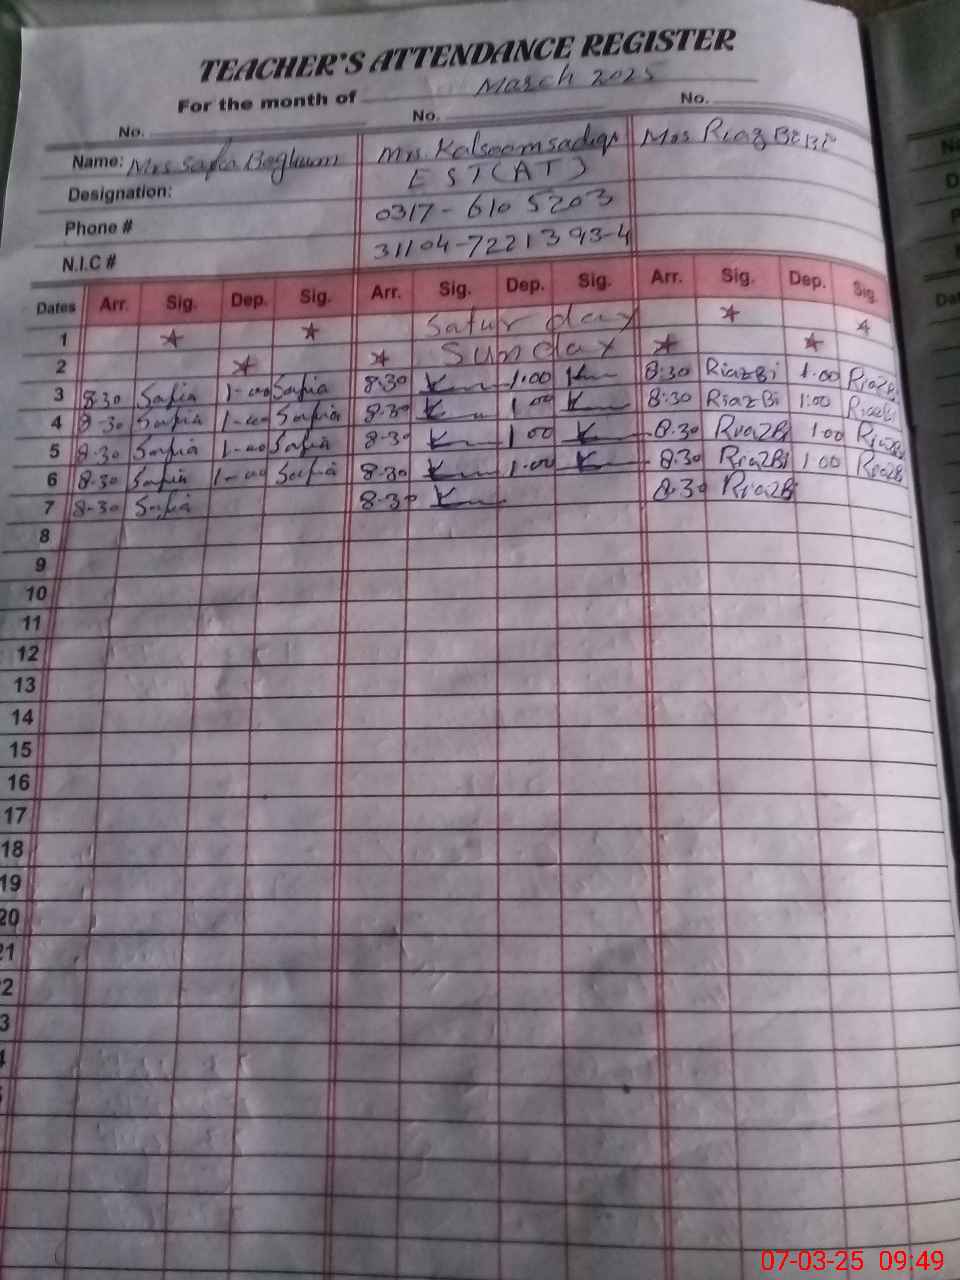 TEACHER'S ATTENDANCE REGISTER
For the month of March 2025
No. No. No.
Name: Mrs. Safia Beghum Mrs. Kalsoom sadiqe Mrs Riaz BiBi
Designation: EST(AT)
Phone # 0317-610 5203
N.I.C # 31104-7221393-4
Dates Arr. Sig. Dep. Sig. Arr. Sig. Dep. Sig. Arr. Sig. Dep. Sig.
1 Saturday
2 Sunday
3 8:30 Safia 1-00 Safia 8:30 K 1:00 K 8:30 RiazBi 1:00 RiazBi
4 8-30 Safia 1-00 Safia 8-30 K 1 00 K 8:30 RiazBi 1:00 RiazBi
5 8-30 Safia 1-00 Safia 8-30 K 1 00 K 8.30 RiazBi 1.00 RiazBi
6 8-30 Safia 1-00 Safia 8-30 K 1.00 K 8.30 RiazBi 1 00 RiazBi
7 8-30 Safia 8-30 K 8-30 RiazBi
8
9
10
11
12
13
14
15
16
17
18
19
20
21
2
3
4
07-03-25 09:49